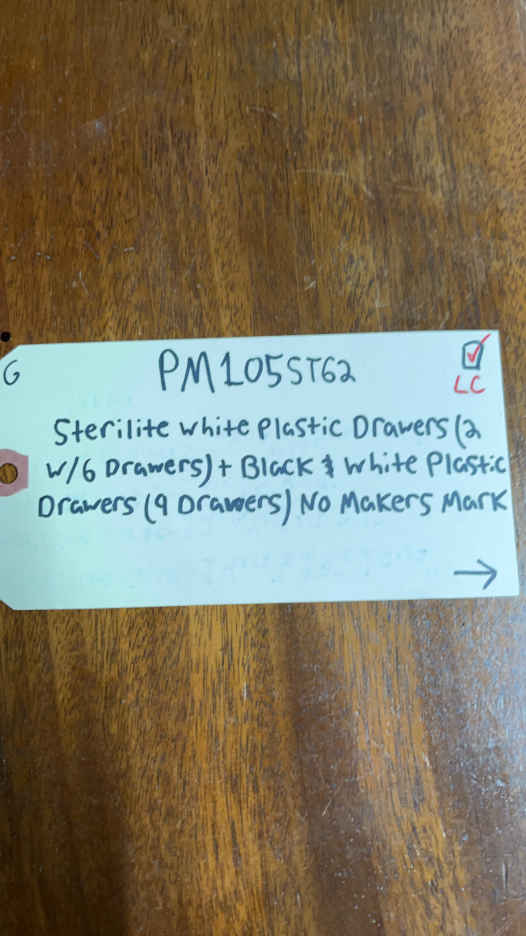 G
PM105ST62
LC
Sterilite White Plastic Drawers (2
W/6 Drawers) + Black & White Plastic
Drawers (9 Drawers) No Makers Mark
→